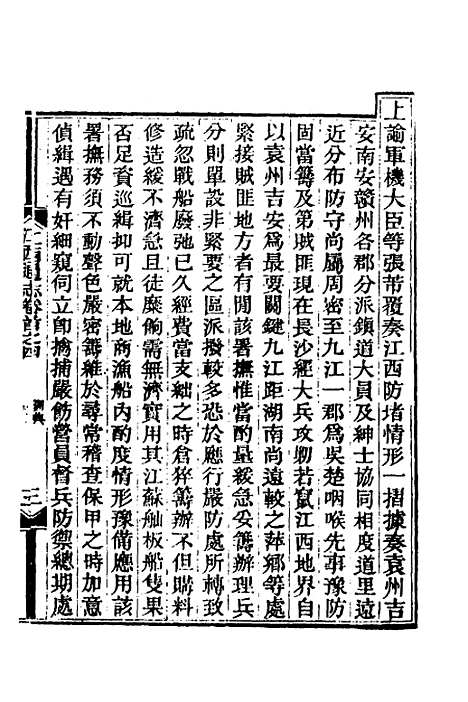 上諭軍機大臣等張芾覆奏江西防堵情形一摺據奏袁州吉
安南安贛州各郡分派鎮道大員及紳士協同相度道里遠
近分布防守尚屬周密至九江一郡爲吳楚咽喉先事豫防
固當籌及第賊匪現在長沙經大兵攻勦若竄江西地界自
以袁州吉安爲最要關鍵九江距湖南尚遠較之萍鄉等處
緊接賊匪地方者有閒該署撫惟當酌量緩急妥籌辦理兵
分則單設非緊要之區派撥較多恐於應行嚴防處所轉致
疏忽戰船廢弛已久經費當支絀之時倉猝籌辦不但購料
修造緩不濟急且徒糜餉需無濟實用其江蘇舢板船隻果
否足資巡緝抑可就本地商漁船內酌度情形豫備應用該
署撫務須不動聲色嚴密籌維於尋常稽查保甲之時加意
偵緝遇有奸細窺伺立卽擒捕嚴飭營員督兵防禦總期處
江西通志卷首之四
訓典
三